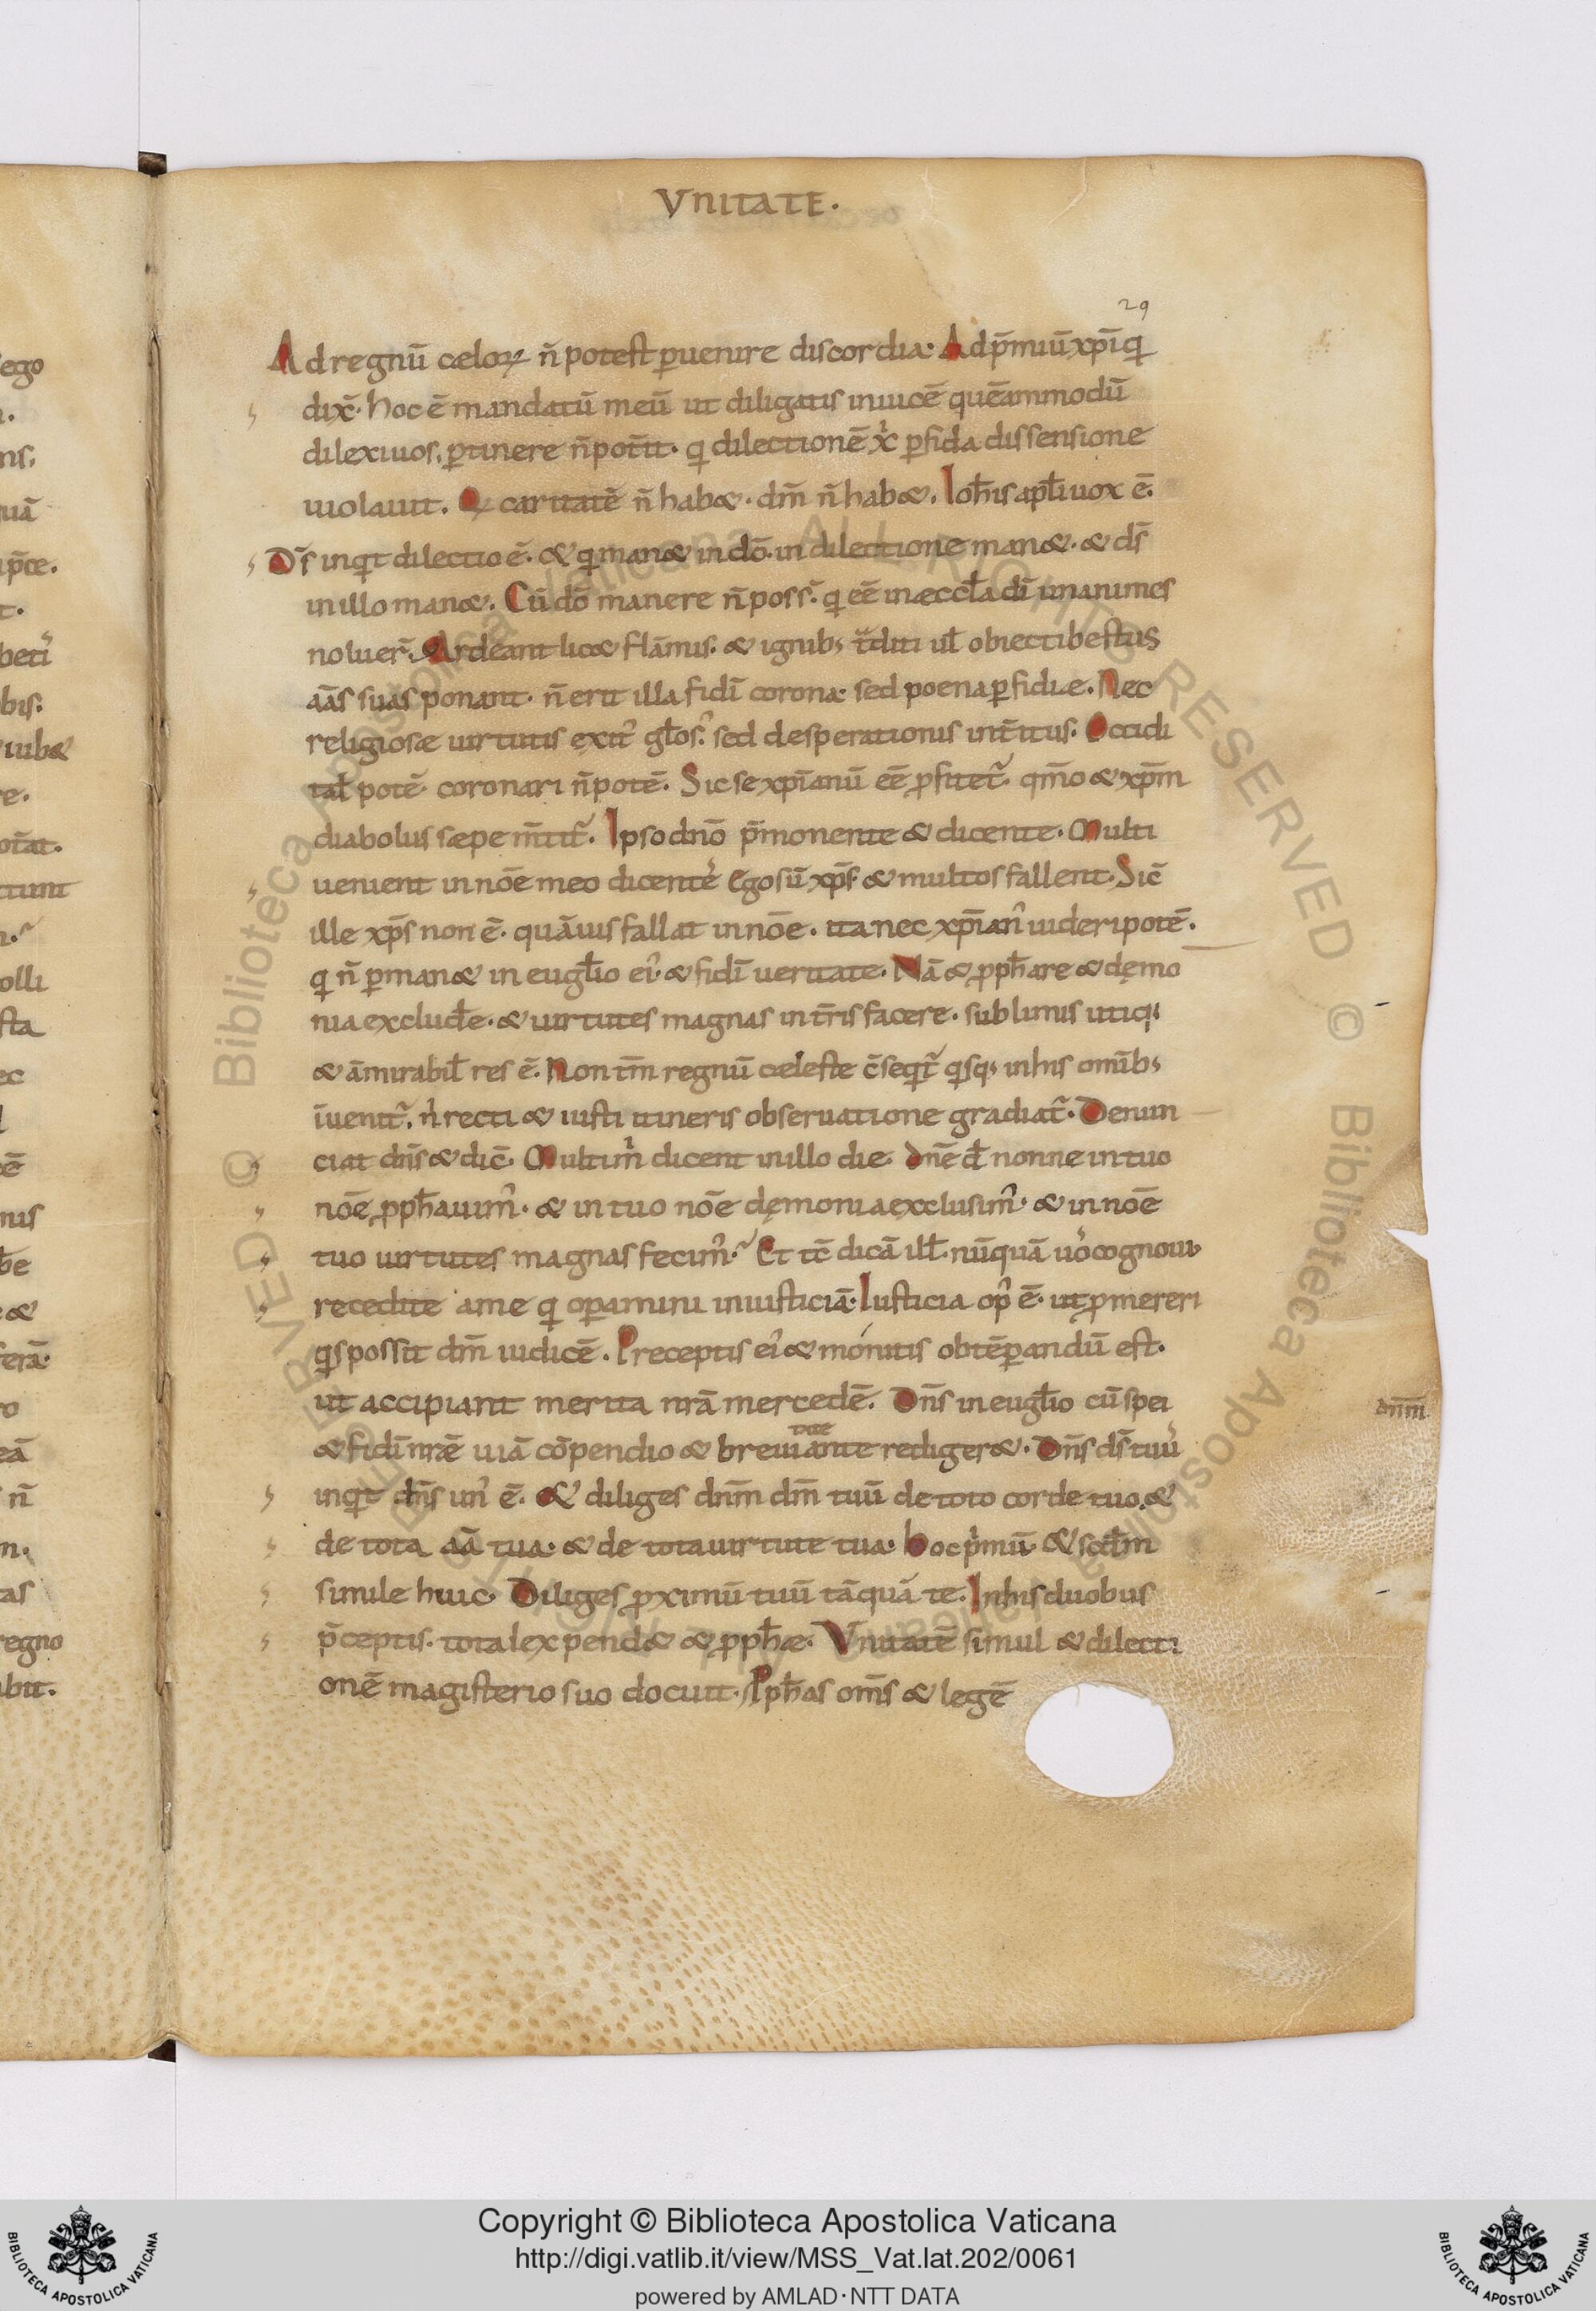 VNITATE.
29
Ad regnū cęloꝝ n̄ potest ꝑuenire discordia. Ad p̄miū xp̄i q̄
dix̄. hoc ē mandatū meū ut diligatis inuicē quēammodū
dilexi uos. ꝑtinere n̄ poter̄it. q̄ dilectionē x̄ ꝑfida dissensione
uiolauit. Q caritatē n̄ habet. dm̄ n̄ habet. Ioh̄is apl̄i uox ē.
Ds̄ inqt̄ dilectio ē. & q̄ manet in dō. in dilectione manet. & ds̄
in illo manet. Cū dō manere n̄ poss̄. q̄ eē in æccl̄a dī unanimes
noluer̄. Ardeant licet flāmis. & ignib; t̄diti ul̄ obiecti bestiis
aās suas ponant. n̄ erit illa fidī corona. sed poena ꝑfidiæ. Nec
religiosæ uirtutis exit᾽ gl̄os᾽. sed desperationis int̄itus. Occidi
tal̄ potē. coronari n̄ potē. Sic se xp̄ianū eē ꝓfitet̄. qm̄o & xp̄m
diabolus sæpe m̄titr̄. Ipso dnō p̄monente & dicente. Multi
uenient in nōe meo dicentē Ego sū xp̄s & multos fallent. Sic̄
ille xp̄s non ē. quāuis fallat in nōe. ita nec xp̄ian᾽ uideri potē.
q̄ n̄ ꝑmanet in eugl̄io ei᾽. & fidī ueritate. Nā & ꝓph̄are & dęmo
nia exclud̄e. & uirtutes magnas in tr̄is facere. sublimis utiq;
& āmirabil̄ res ē. Non tm̄ regnū cęleste c̄seqt̄ qsq; in his omīb;
īuenitr̄. n᾽ recti & iusti itineris obseruatione gradiat̄. Denun
ciat dn̄s & dic̄. Multi m᾽ dicent in illo die. dn̄e d̄ nonne in tuo
nōe ꝓph̄auim᾽. & in tuo nōe dęmonia exclusim᾽. & in nōe
tuo uirtutes magnas fecim᾽. Et tc̄ dicā ill̄. nūquā uo᾽ cognoui.
recedite a me q̄ oꝑamini iniusticiā. Iusticia op᾽ ē. ut ꝓmereri
qs possit dm̄ iudicē. Preceptis ei᾽ & monitis obtēꝑandū est.
ut accipiant merita nrā mercedē. Dn̄s in eugl̄io cū spei
& fidī nr̄ē uiā cōpendio & breuiante redigeret. Dn̄s ds̄ tuu᾽
inqt̄ dn̄s un᾽ ē. & diliges dnm̄ dm̄ tuū de toto corde tuo. &
de tota aā tua. & de tota uirtute tua. hoc p᾽mū. & scd̄m
simile huic. Diliges ꝓximū tuū tāquā te. In his duobus
p̄ceptis. tota lex pendet & ꝓph̄æ. Vnitatē simul & dilecti
onē magisterio suo docuit. Pph̄as om̄s & legē
Copyright © Biblioteca Apostolica Vaticana
http://digi.vatlib.it/view/MSS_Vat.lat.202/0061
powered by AMLAD·NTT DATA